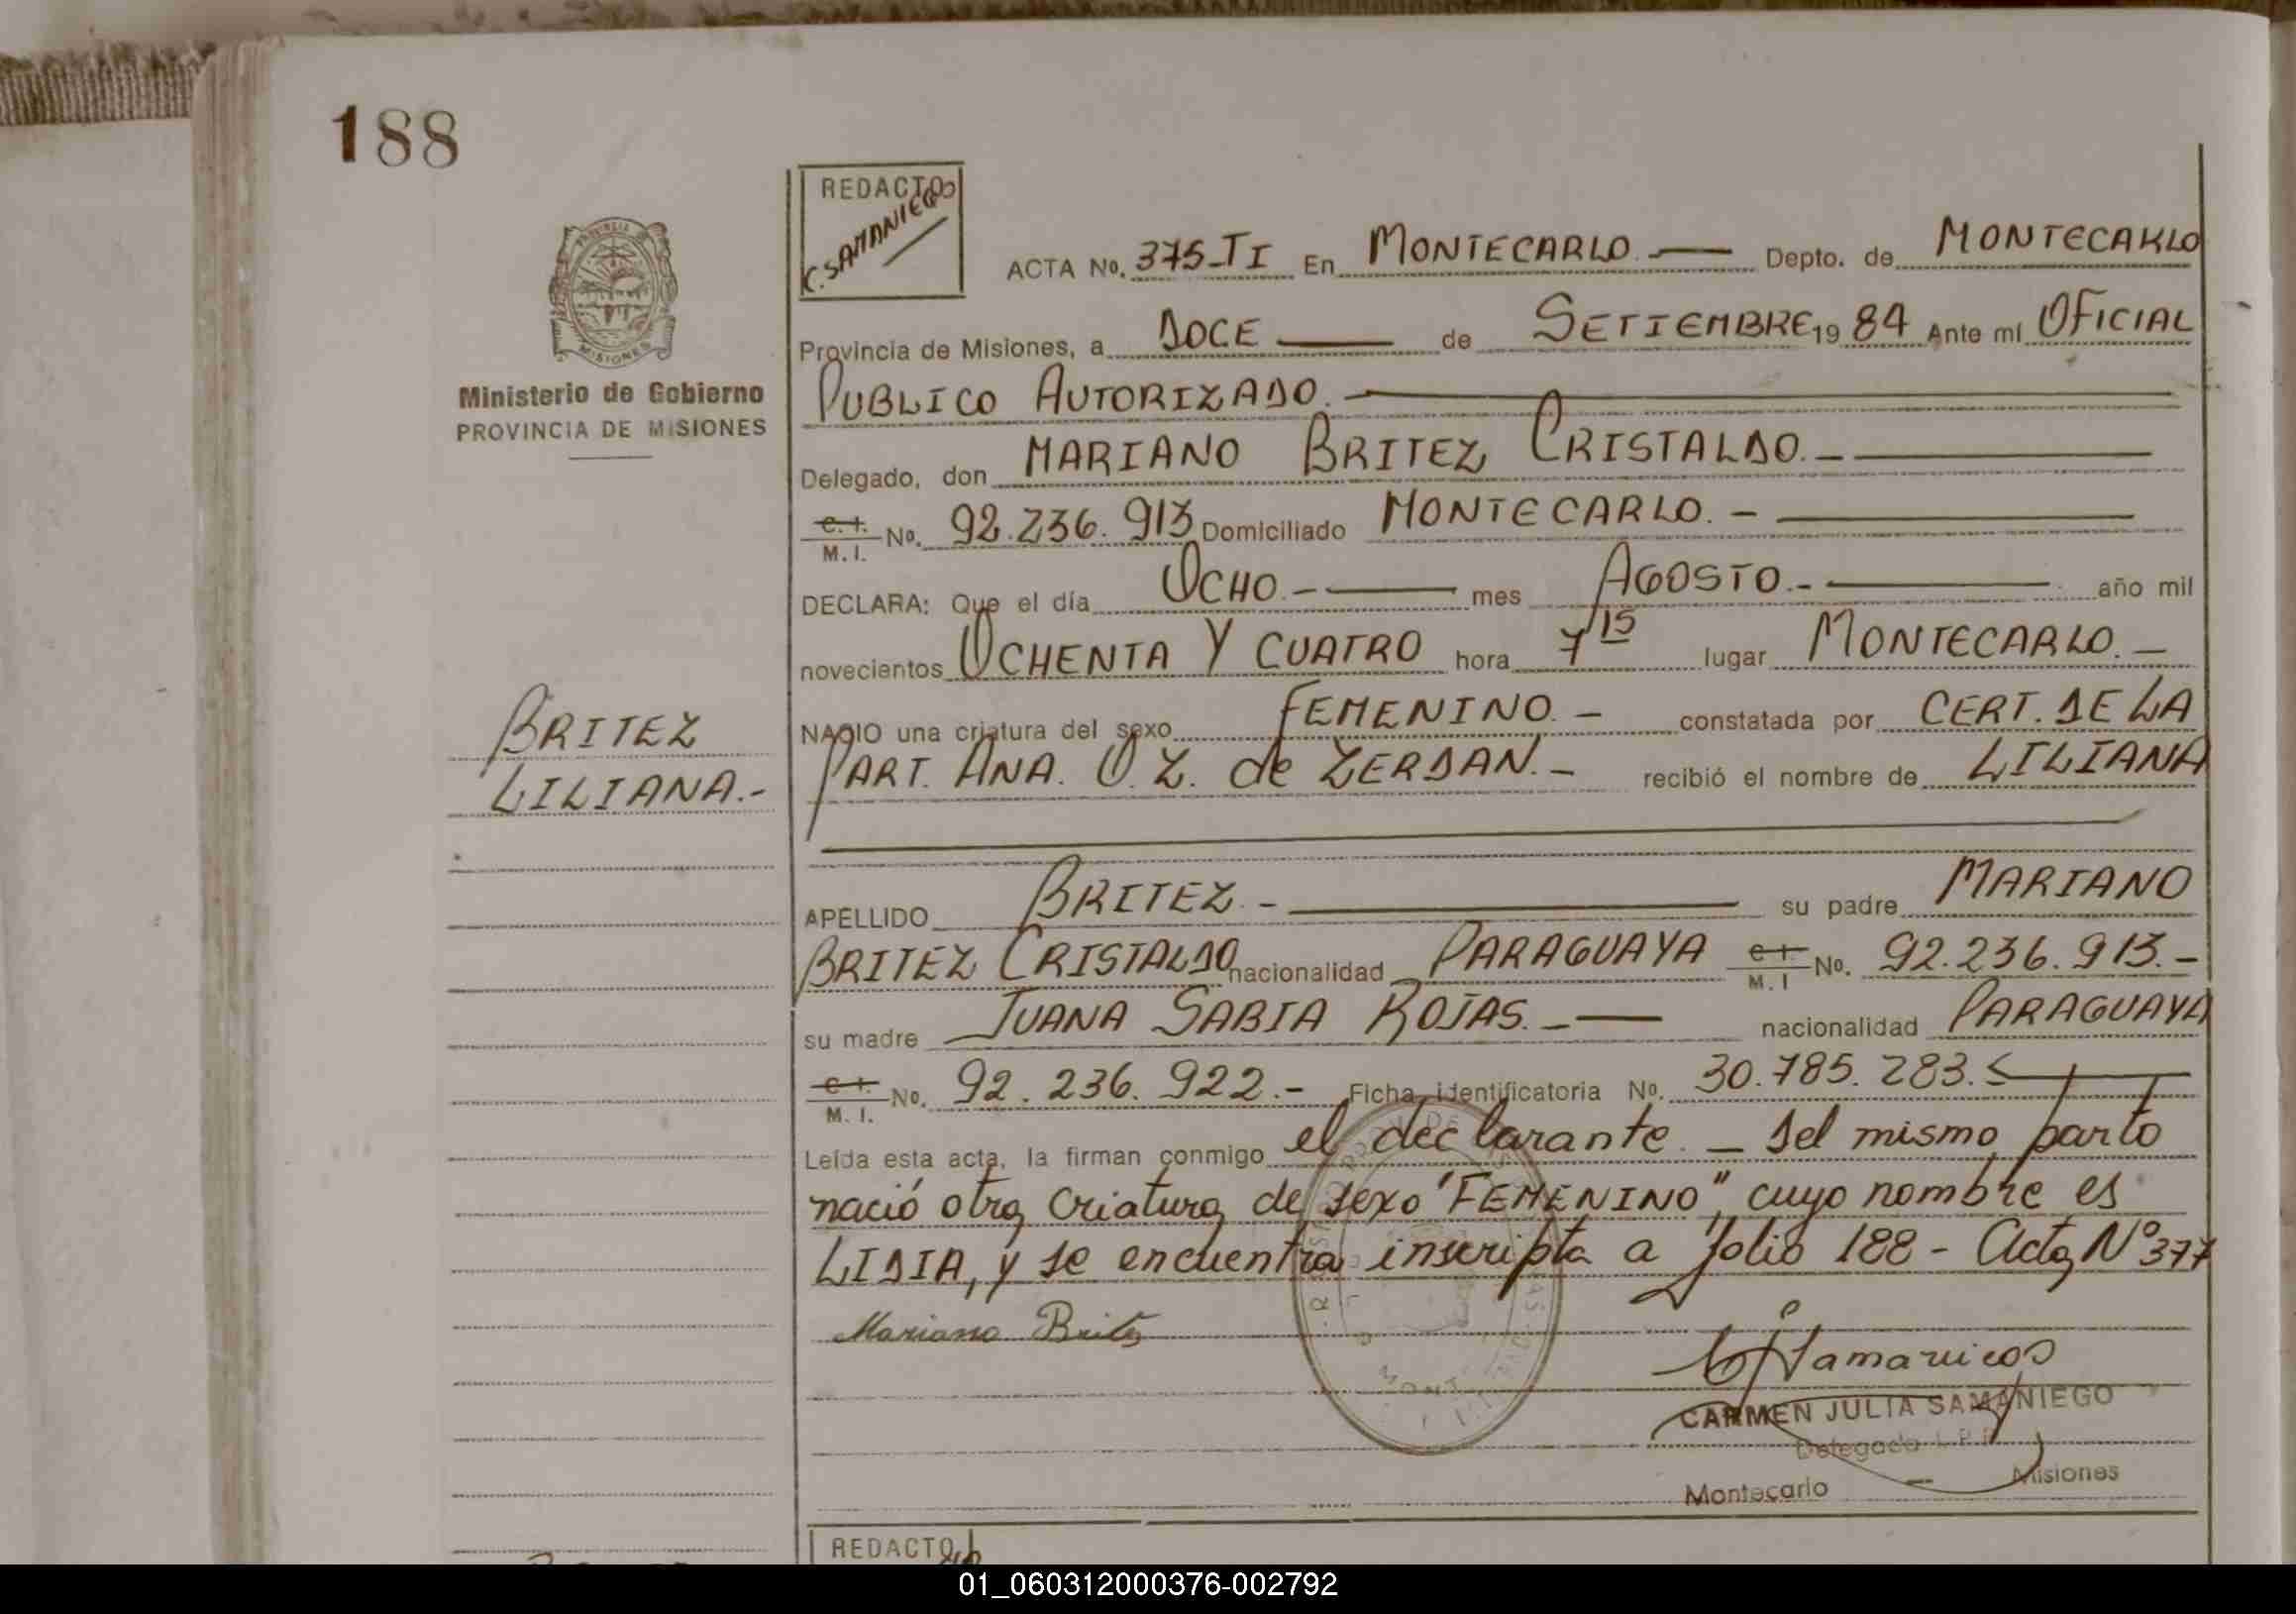 188
REDACTO
C. SAMANIEGO
ACTA No. 375-TI En MONTECARLO.— Depto. de MONTECARLO
Provincia de Misiones, a DOCE — de SETIEMBRE 1984 Ante mi OFICIAL
PUBLICO AUTORIZADO.—
Delegado, don MARIANO BRITEZ CRISTALDO.—
C.I. M.I. No. 92.236.913 Domiciliado MONTECARLO.—
DECLARA: Que el día OCHO.— mes AGOSTO.— año mil
novecientos OCHENTA Y CUATRO hora 7 15 lugar MONTECARLO.—
NACIO una criatura del sexo FEMENINO.— constatada por CERT. DE LA
PART. ANA. O. Z. de ZERDAN.— recibió el nombre de LILIANA
APELLIDO BRITEZ.— su padre MARIANO
BRITEZ CRISTALDO nacionalidad PARAGUAYA C.I. M.I No. 92.236.913.—
su madre JUANA SABIA ROJAS.— nacionalidad PARAGUAYA
C.I. M.I. No. 92.236.922.- Ficha identificatoria No. 30.785.283.
Leída esta acta, la firman conmigo el declarante.— Del mismo parto
nació otra criatura de sexo "FEMENINO", cuyo nombre es
LIDIA, y se encuentra inscripta a folio 188 - Acta Nº 377
Mariano Britez
CARMEN JULIA SAMANIEGO
Delegada
Montecarlo — Misiones
REDACTO
MISIONES
Ministerio de Gobierno
PROVINCIA DE MISIONES
BRITEZ
LILIANA.-
01_060312000376-002792